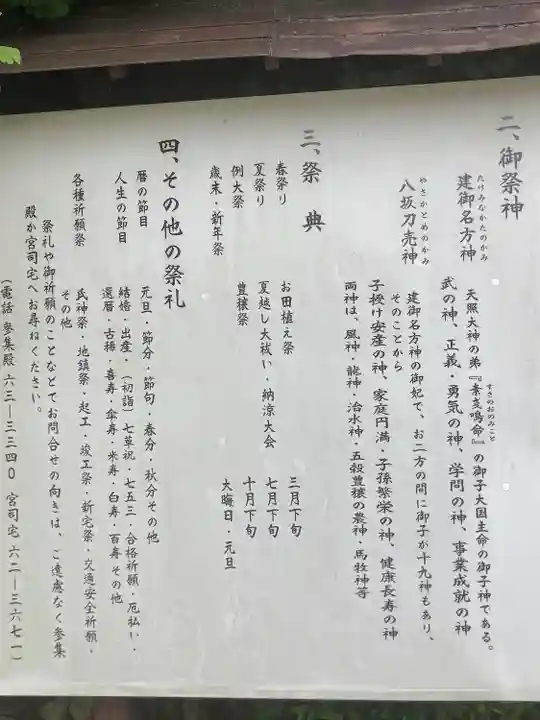 二、御祭神
たけみなかたのかみ
建御名方神
天照大神の弟『素戔嗚命』の御子大国主命の御子神である。
すさのおのみこと
武の神、正義・勇気の神、学問の神、事業成就の神
やさかとめのかみ
八坂刀売神
建御名方神の御妃で、お二方の間に御子が十九神もあり、
そのことから
子授け安産の神、家庭円満・子孫繁栄の神、健康長寿の神
両神は、風神・龍神・治水神・五穀豊穣の農神・馬牧神等
三、祭典
春祭り お田植え祭 三月下旬
夏祭り 夏越し大祓い・納涼大会 七月下旬
例大祭 豊穣祭 十月下旬
歳末・新年祭 大晦日・元旦
四、その他の祭礼
暦の節目 元旦・節分・節句・春分・秋分その他
人生の節目 結婚・出産・(初詣)七草祝・七五三・合格祈願・厄払い・
還暦・古稀・喜寿・傘寿・米寿・白寿・百寿その他
各種祈願祭 氏神祭・地鎮祭・起工・竣工祭・新宅祭・交通安全祈願・
その他
祭礼や御祈願のことなどでお問合せの向きは、ご遠慮なく参集
殿か宮司宅へお尋ねください。
(電話 参集殿 六三―三三四〇 宮司宅 六二―三六七一)